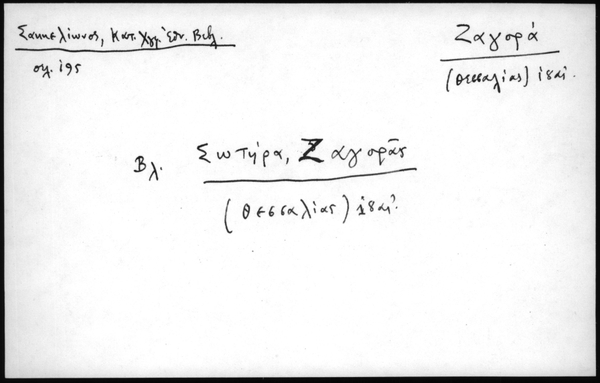 Σακκελίωνος, Κατ. Χγρ. Ἐθν. Βιβλ.
σελ. 195
Ζαγορά
(Θεσσαλίας) ἰδαί.
Βλ. Σωτήρα, Ζαγορᾶς
(Θεσσαλίας) ἰδαί.